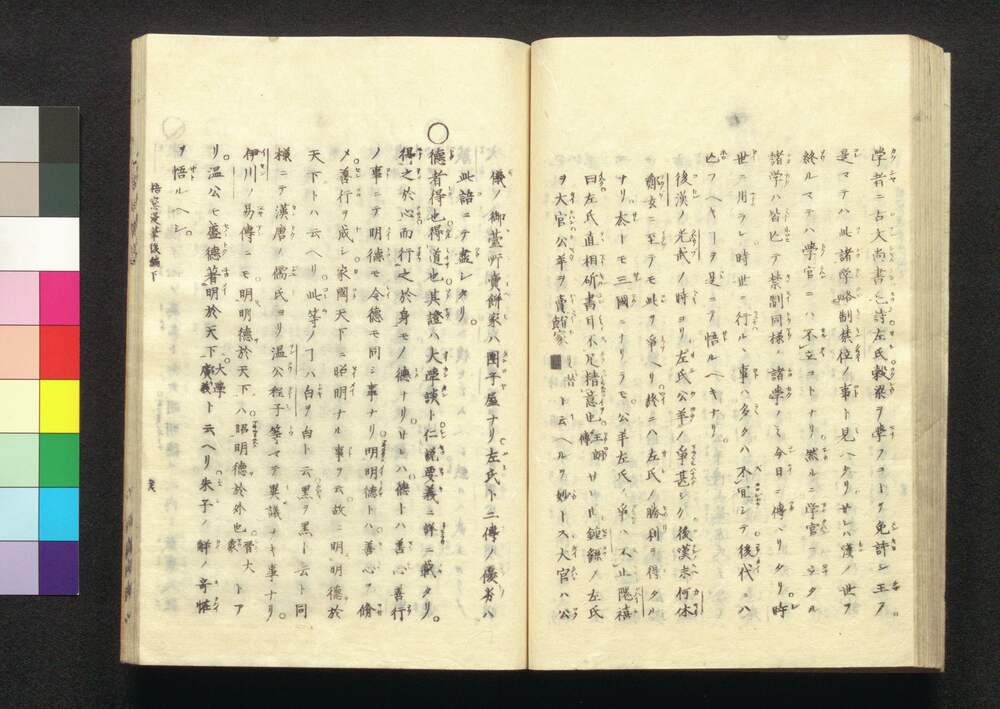 學者ニ占文尚書毛詩左氏穀梁ヲ學フコトヲ免許シ玉フ
是マテハ此諸學略制禁位ノ事ト見ヘタリサレハ漢ノ世ヲ
終ルマテハ學官ニハ不立コトナリ然ルニ學官ニ立タル
諸学ハ皆亡テ禁制同様ノ諸學ノミ今日ニ傳ハリタリ時
世ニ用ラレ時世ニ行ルヽ事ハ多クハ不宜シテ後代ニハ
亡フヘキヿヲ是ニテ悟ルヘキナリ
後漢ノ光武ノ時ヨリ左氏公羊ノ爭甚シク後漢末何休
鄭玄ニ至テモ此ヲ爭ヘリ終ニハ左氏ノ勝利ヲ得タル
ナリ太トモ三國ニナリテモ公羊左氏ノ爭ハ不止隗禧
曰左氏直相斫書耳不足精意也王郎傳サルニ鍾繇ノ左氏
ヲ大官公羊ヲ賣餅家ト云ヘルヲ妙トス大官ハ公
儀ノ御䑓所賣餅家ハ團子屋ナリ左氏ト二傳ノ優劣ハ
此語ニテ盡レタリ
德者得也得道也其證ハ大學談ト仁說要義ニ詳ニ載タリ
得之於心而行之於身モノ德ナリサレハ德トハ善心善行
ノ事ニテ明德モ令德モ同シ事ナリ明明德トハ善心ヲ脩
メ善行ヲ成シ家國天下ニ昭明ナル事ヲ云故ニ明明德於
天下トハ云ヘリ此等ノヿハ白ヲ白ト云黒ヲ黒ト云ト同
様ニテ漢唐ノ偶氏ヨリ温公程子等マテ異議ナキ事ナリ
伊川ノ易傳ニモ明明德於天下ハ昭明德於外也晋大象トア
リ温公モ盛德著明於天下大學廣義ト云ヘリ朱子ノ解ノ奇怪
ヲ悟ルヘシ
梧窓漫筆後編下